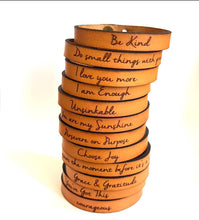 Be Kind
Do small things with
I love you more
I am Enough
Unsinkable
are my Sunshine
Persevere on Purpose
Choose Joy
the moment before it's
Grace & Gratitude
Got This
courageous